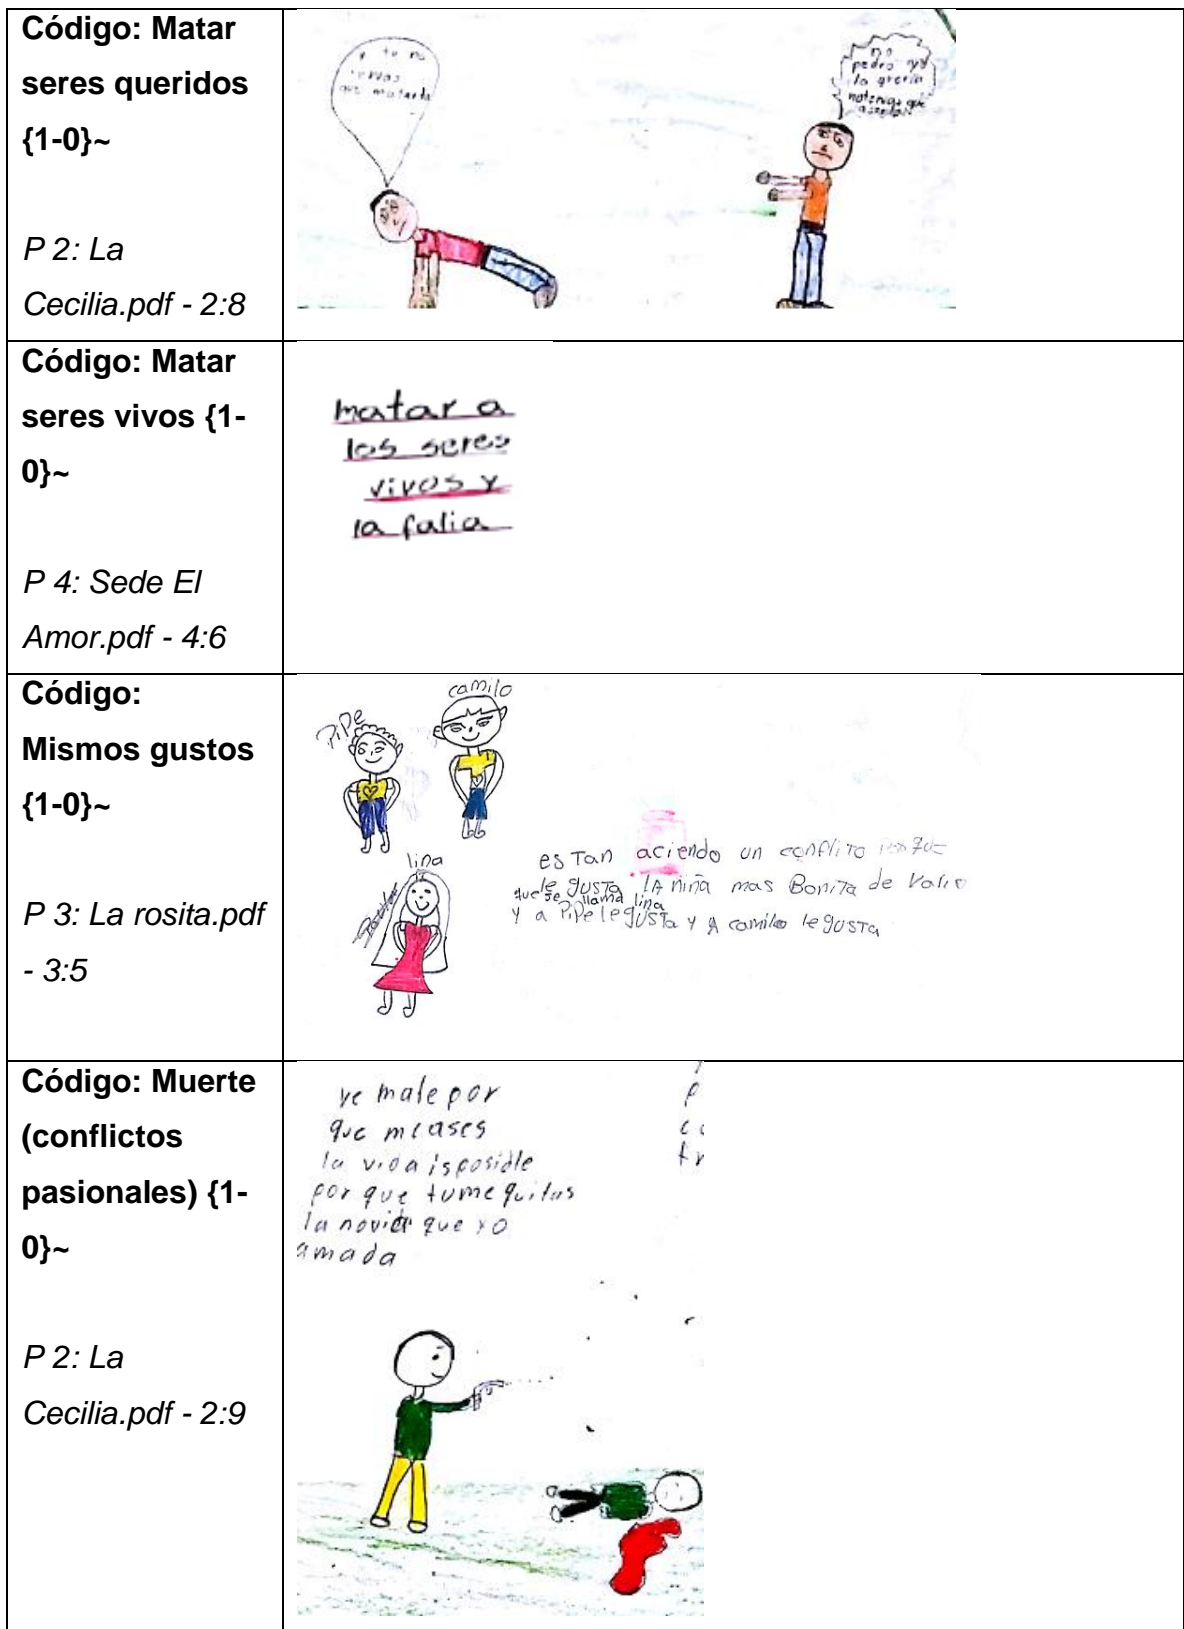 Código: Matar
seres queridos
{1-0}~
P 2: La
Cecilia.pdf - 2:8
y tu no
que matarla
no
pedro
la
Código: Matar
seres vivos {1-
0}~
P 4: Sede El
Amor.pdf - 4:6
matar a
los seres
vivos y
la falia
Código:
Mismos gustos
{1-0}~
P 3: La rosita.pdf
- 3:5
PiPe
camilo
lina
es Tan aciendo un conflito
que le gusta la niña mas Bonita de
que se llama lina
y a PiPe le gusta y A camilo le gusta
Código: Muerte
(conflictos
pasionales) {1-
0}~
P 2: La
Cecilia.pdf - 2:9
ye mate por
que me ases
la vida isposidle
por que tu me quitas
la novia que yo
amada